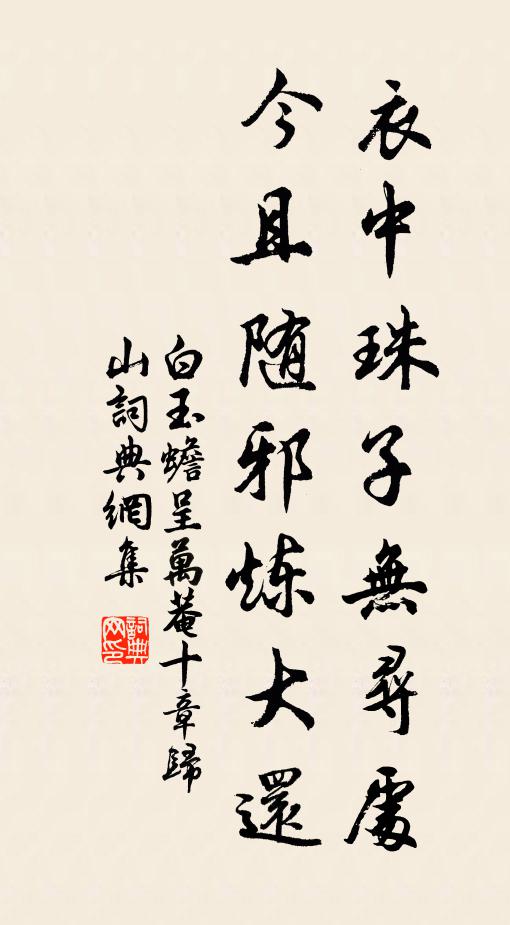 衣中珠子無尋處
今且随邪炼大還
白玉蟾呈萬菴十章歸
山詞典網集
詞典网印